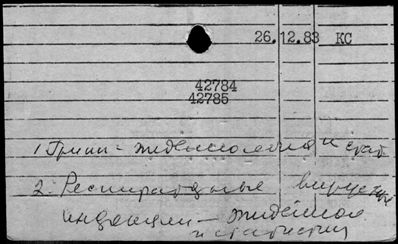 26.12.83 КС
42784
42785
1. Грипп - эпидемиология и стат
2. Респираторные вирусные
инфекции - эпидемиол
и статистика